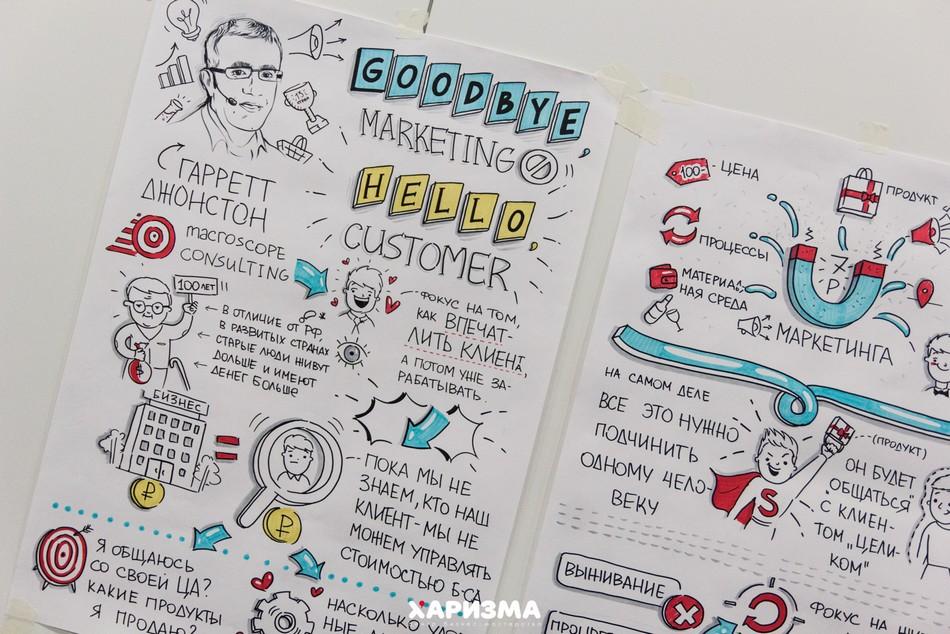 GOODBYE,
MARKETING
HELLO,
CUSTOMER
ГАРРЕТТ
ДЖОНСТОН
MACROSCOPE
CONSULTING
100 ЛЕТ!!
В ОТЛИЧИЕ ОТ РФ,
В РАЗВИТЫХ СТРАНАХ
СТАРЫЕ ЛЮДИ ЖИВУТ
ДОЛЬШЕ И ИМЕЮТ
ДЕНЕГ БОЛЬШЕ
ФОКУС НА ТОМ,
КАК ВПЕЧАТ-
ЛИТЬ КЛИЕНТА,
А ПОТОМ УЖЕ ЗА-
РАБАТЫВАТЬ.
БИЗНЕС
₽
=
₽
ПОКА МЫ НЕ
ЗНАЕМ, КТО НАШ
КЛИЕНТ - МЫ НЕ
МОЖЕМ УПРАВЛЯТЬ
СТОИМОСТЬЮ Б-СА
Я ОБЩАЮСЬ
СО СВОЕЙ ЦА?
КАКИЕ ПРОДУКТЫ
Я ПРОДАЮ?
НАСКОЛЬКО
100-
- ЦЕНА
ПРОДУКТ
ПРОЦЕССЫ
МАТЕРИАЛЬ-
НАЯ СРЕДА
7
P
МАРКЕТИНГА
НА САМОМ ДЕЛЕ
ВСЕ ЭТО НУЖНО
ПОДЧИНИТЬ
ОДНОМУ ЧЕЛО-
ВЕКУ
S
-(ПРОДУКТ)
ОН БУДЕТ
ОБЩАТЬСЯ
С КЛИЕН-
ТОМ "ЦЕЛИ-
КОМ"
ВЫЖИВАНИЕ
ФОКУС НА
ХАРИЗМА